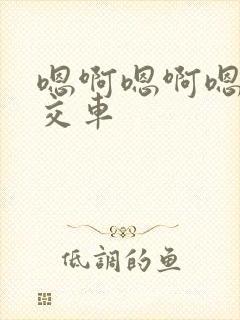 嗯啊嗯啊嗯
交车
低調的鱼